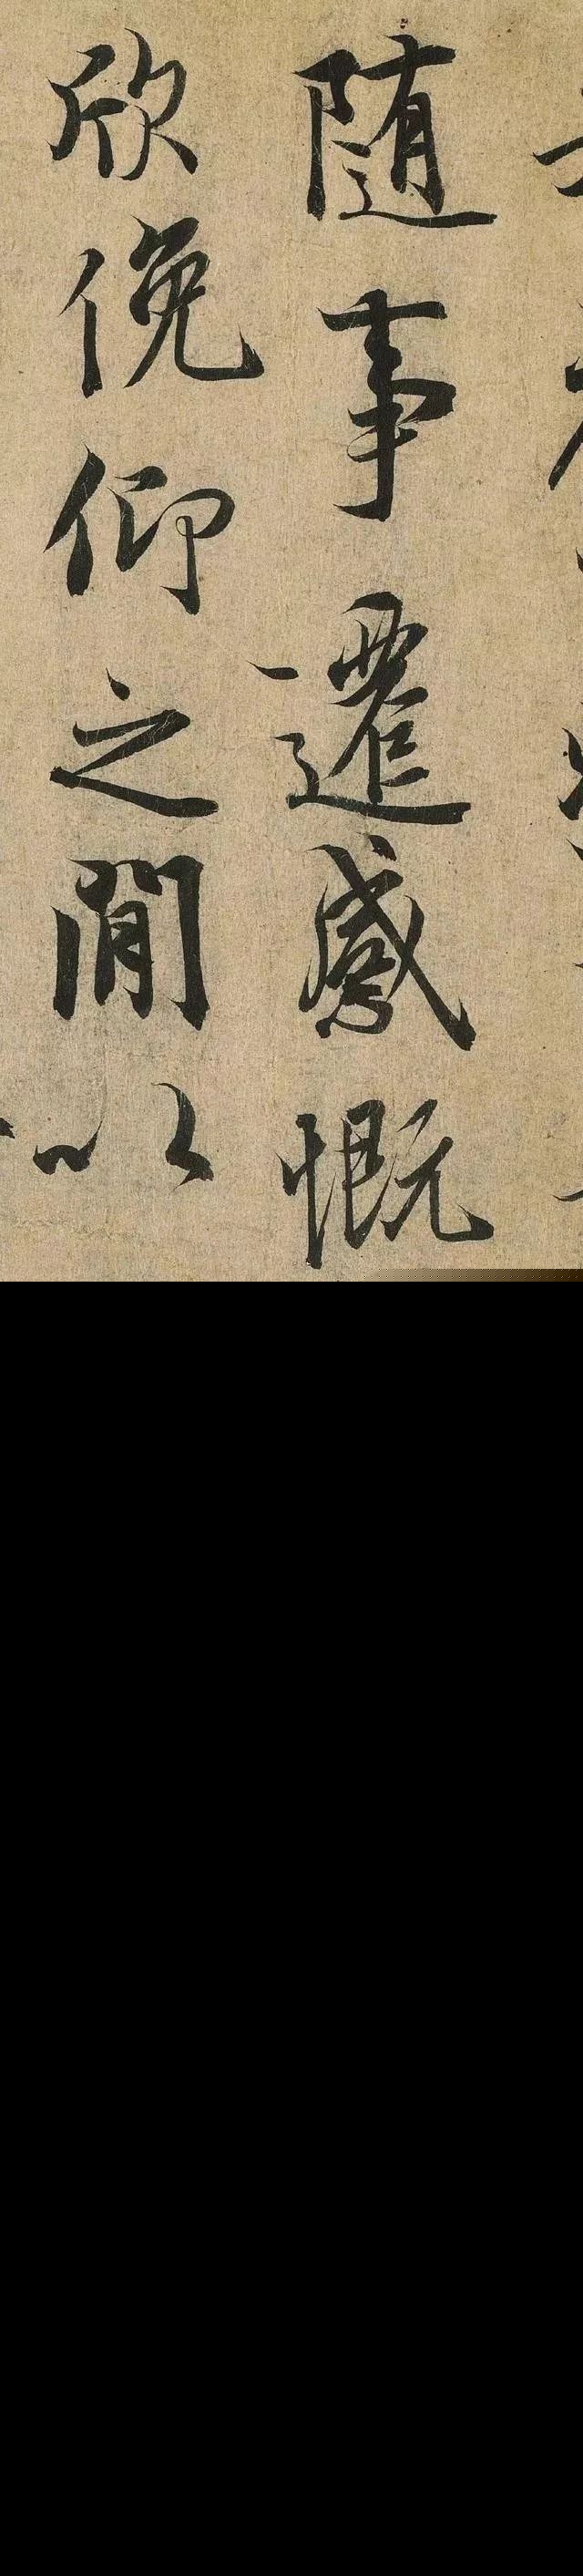 随事遷感慨
欣俛仰之閒以